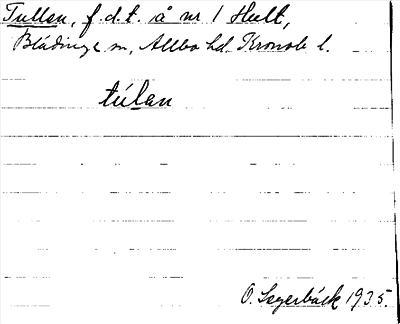 Tullan, f.d.t. å nr 1 Hult,
Blädinge sn, Allbo hd. Kronob. l.
túlan
O. Segerbäck 1935.